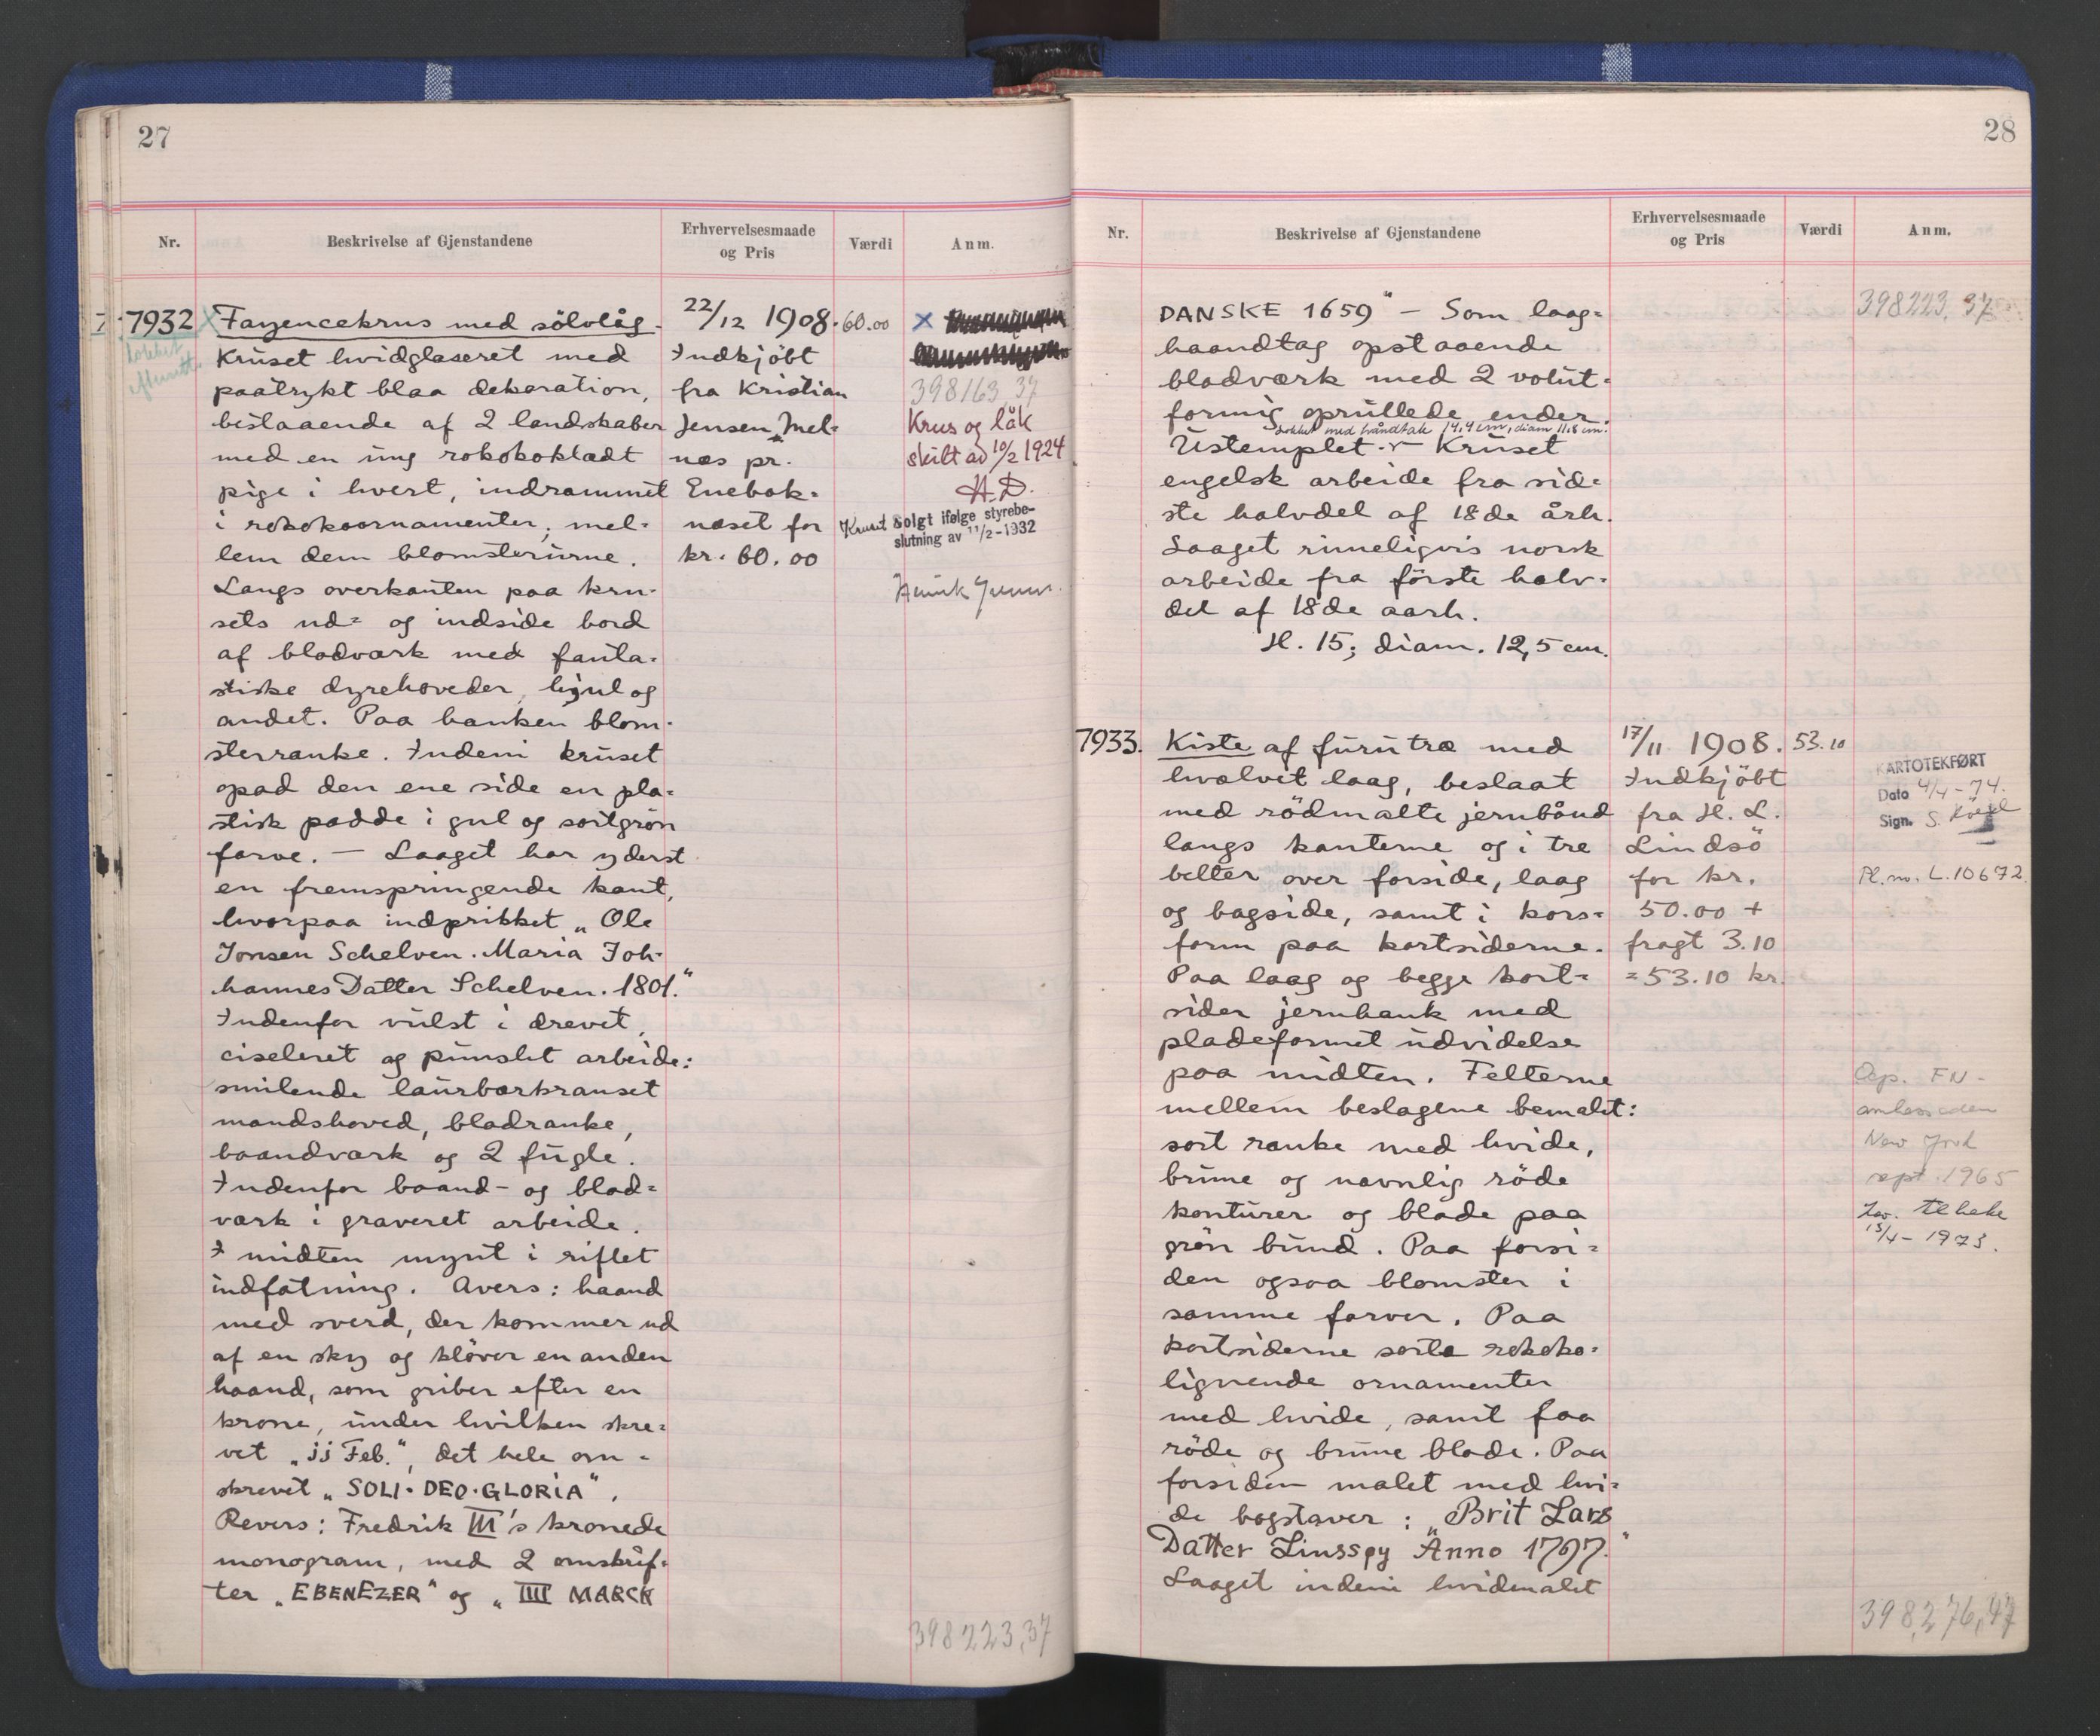 27
Nr.
Beskrivelse af Gjenstandene
Erhvervelsesmaade
og Pris
Værdi
Anm.
7932
Fayencekrus med sölvlåg.
Kruset hvidglaseret med
paatrykt blaa dekoration,
bestaaende af 2 landskaber
med en ung rokokoklædt
pige i hvert, indrammet
i rokokoornamenter; mel-
lem dem blomsterurne.
Langs overkanten paa kru-
sets ud- og indside bord
af bladværk med fanta-
stiske dyrehoveder, hjul og
andet. Paa hanken blom-
sterranke. Indeni kruset
opad den ene side en pla-
stisk padde i gul og sortgrön
farve. — Laaget har yderst
en fremspringende kant,
hvorpaa indprikket „Ole
Jonsen Schelven. Maria Joh-
hannes Datter Schelven. 1801."
Indenfor vulst i drevet,
ciseleret og punslet arbeide:
smilende laurbærkranset
mandshoved, bladranke,
baandværk og 2 fugle.
Indenfor baand- og blad-
værk i graveret arbeide.
I midten mynt i riflet
indfatning. Avers: haand
med sverd, der kommer ud
af en sky og klöver en anden
haand, som griber efter en
krone, under hvilken skre-
vet „jj Feb.", det hele om-
skrevet „SOLI·DEO·GLORiA".
Revers: Fredrik III's kronede
monogram, med 2 omskrif-
ter „EBENEZER" og „IIII MARCK
22/12 1908.
Indkjöbt
fra Kristian
Jensen, Mel-
næs pr.
Enebak-
næset for
kr. 60.00
60.00
x
398163,37
Krus og låk
skilt ad 10/2 1924
H. D.
Kruset Solgt ifølge styrebe-
slutning av 11/2-1932
398223,37
28
Nr.
Beskrivelse af Gjenstandene
Erhvervelsesmaade
og Pris
Værdi
Anm.
398223,37
DANSKE 1659" — Som laag-
haandtag opstaaende
bladværk med 2 volut-
formig oprullede ender.
Lokket med håndtak 14,4 cm, diam 11,8 cm.
Ustemplet. — Kruset
engelsk arbeide fra sid-
ste halvdel af 18de årh.
Laaget rimeligvis norsk
arbeide fra förste halv-
del af 18de aarh.
H. 15; diam. 12,5 cm.
7933.
Kiste af furutræ med
hvælvet laag, beslaat
med rödmalte jernbånd
langs kanterne og i tre
belter over forside, laag
og bagside, samt i kors-
form paa kortsiderne.
Paa laag og begge kort-
sider jernhank med
pladeformet udvidelse
paa midten. Felterne
mellem beslagene bemalet:
sort ranke med hvide,
brune og navnlig röde
konturer og blade paa
grön bund. Paa forsi-
den ogsaa blomster i
samme farver. Paa
kortsiderne sorte rokoko-
lignende ornamenter
med hvide, samt faa
röde og brune blade. Paa
forsiden malet med hvi-
de bogstaver: „Brit Lars
Datter Linsspy Anno 1797."
Laaget indeni hvidmalet
17/11 1908.
Indkjöbt
fra H. L.
Lindsö
for kr.
50.00 +
fragt 3.10
=53.10 kr.
53.10
KARTOTEKFØRT
Dato 4/4-74.
Sign. S.
Pl. no. L. 10672.
Dep. FN-
ambassaden
New York
sept. 1965
Lev. tilbake
13/4-1973.
398,276,47